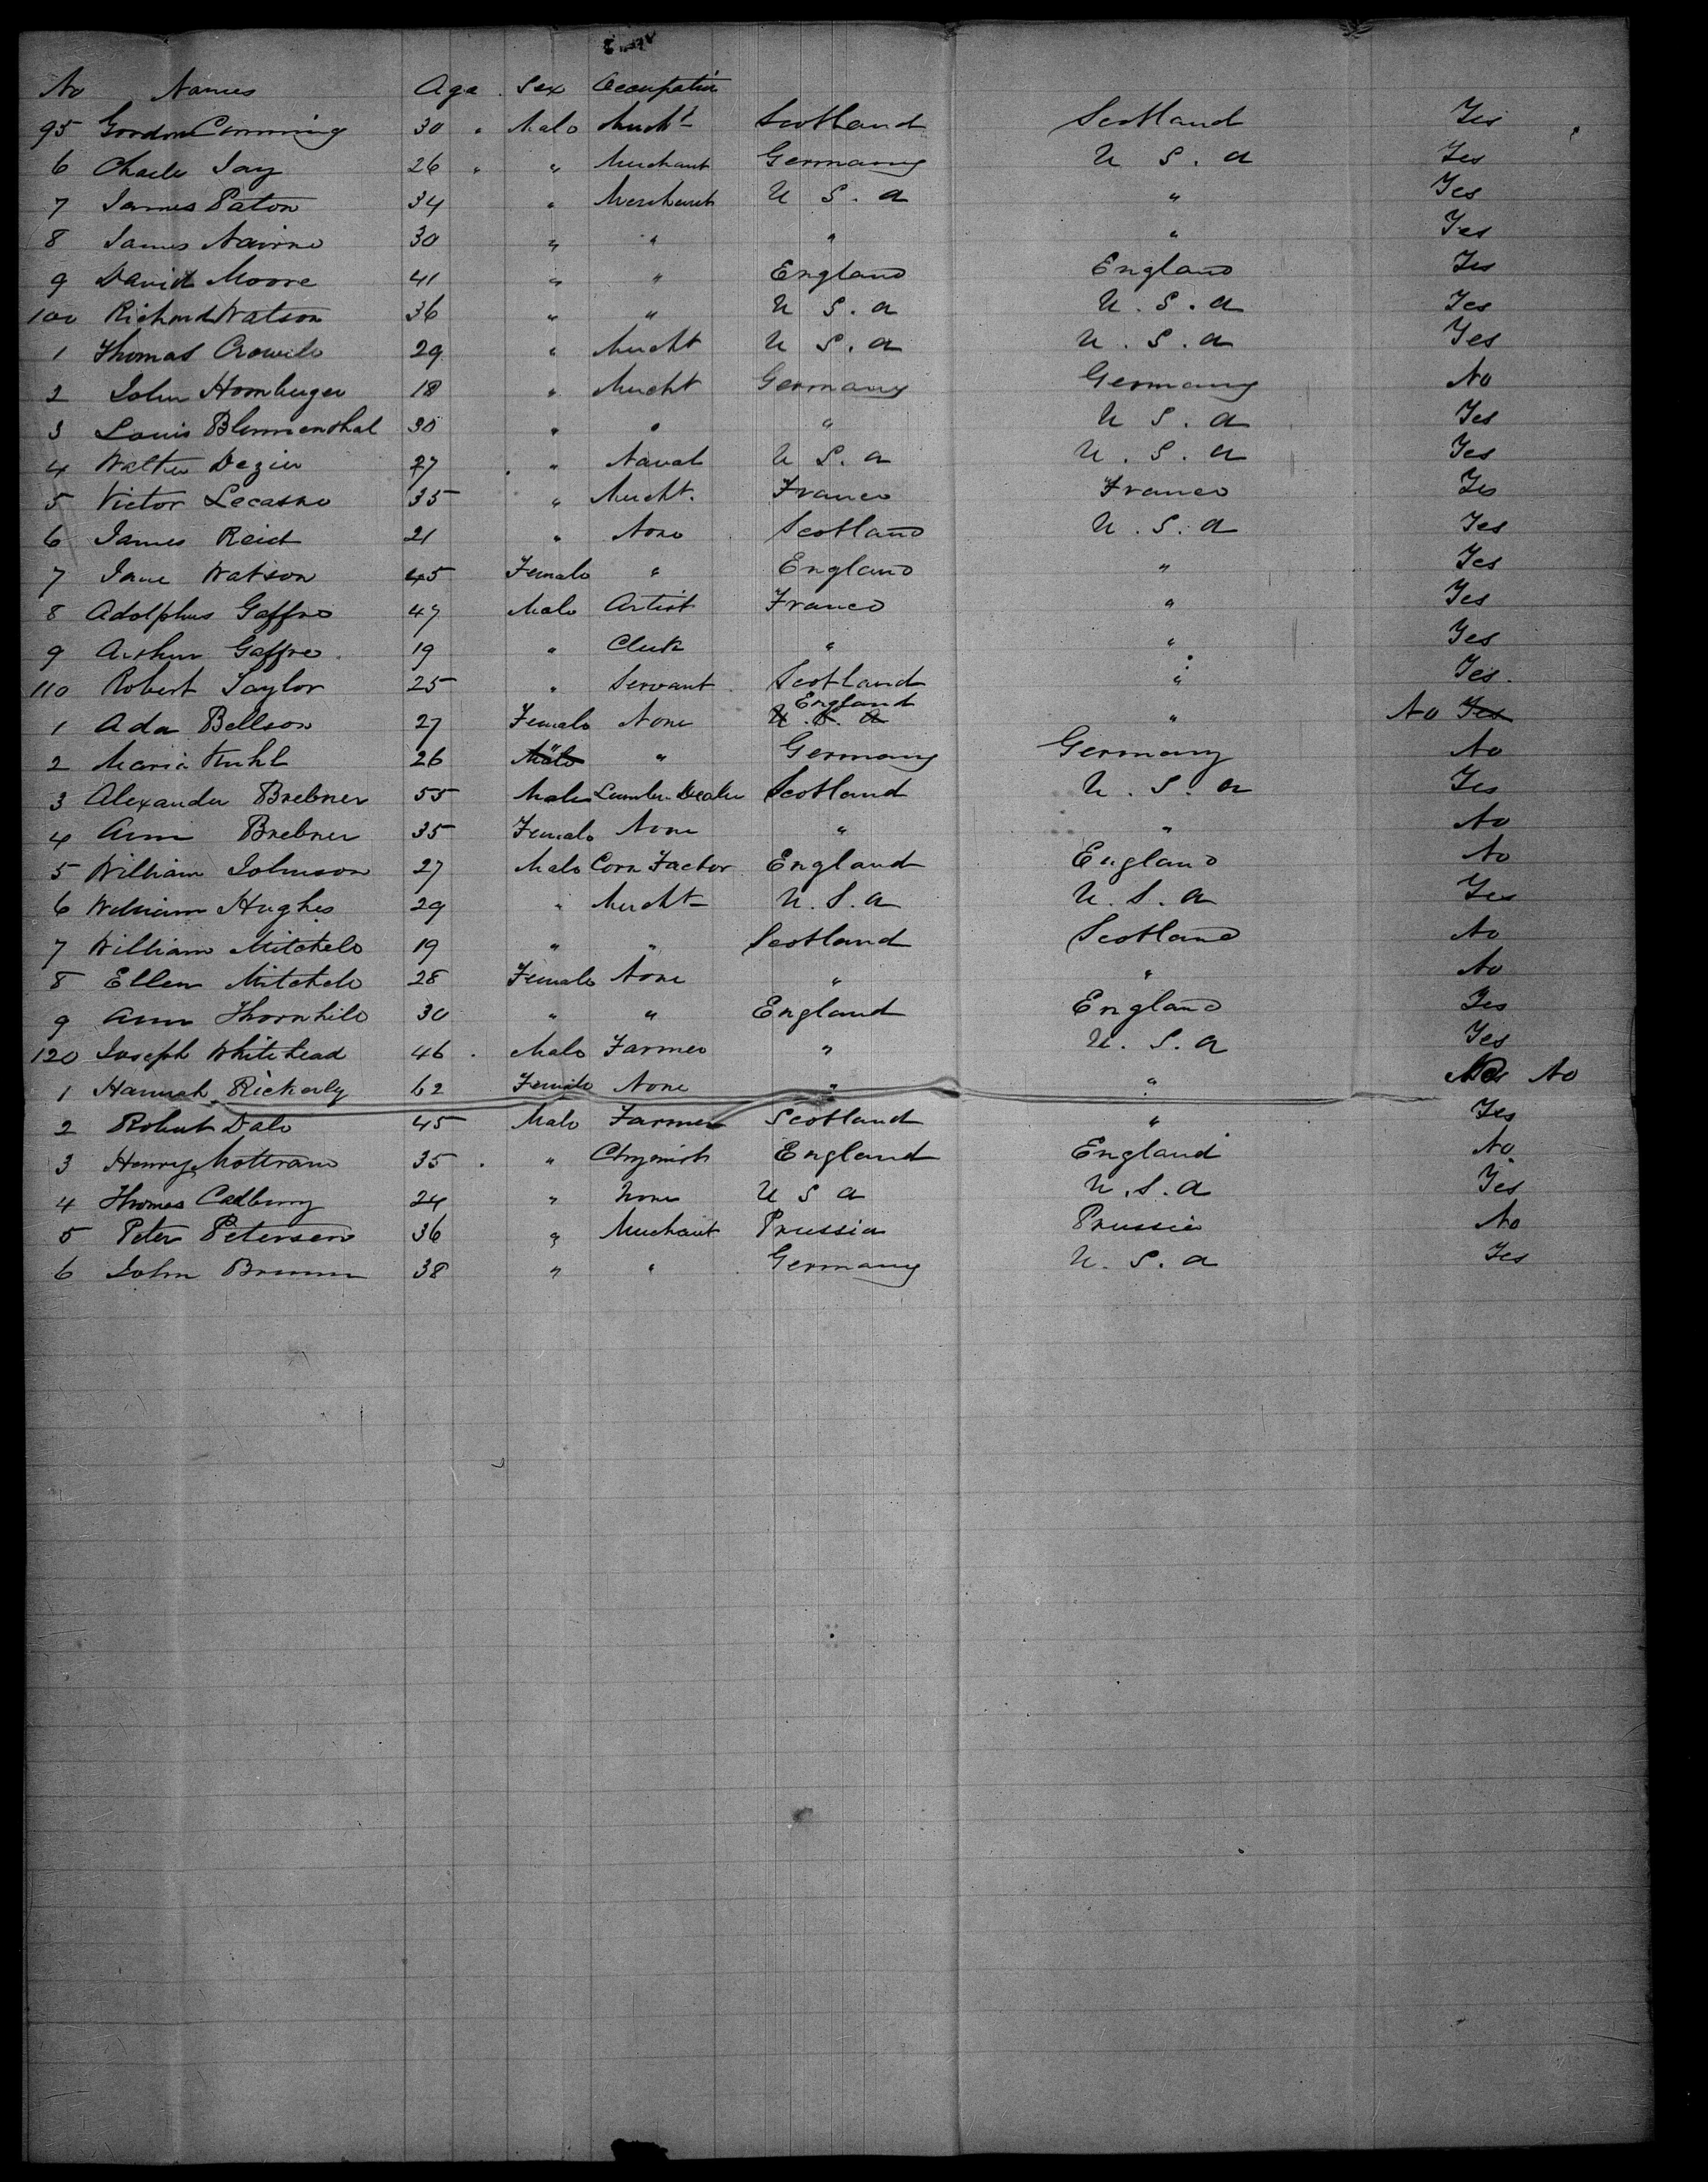 No Names Age Sex Occupation
95 Gordon Cumming 30 " Male Mercht Scotland Scotland Yes
6 Charles Jay 26 " " Merchant Germany U S. a Yes
7 James Paton 34 " Merchant U S. a " Yes
8 James Nairne 30 " " " " Yes
9 David Moore 41 " " England England Yes
100 Richard Watson 36 " " U S. a U. S. a Yes
1 Thomas 29 " Mercht U S. a U. S. a Yes
2 John Homberger 18 " Mercht Germany Germany No
3 Louis Blumenthal 30 " " " U S. a Yes
4 Walter Dezier 27 " Naval U S. a U. S. a Yes
5 Victor 35 " Mercht. France France Yes
6 James Reid 21 " None Scotland U. S. a Yes
7 Jane Watson 45 Female " England " Yes
8 Adolphus Gaffre 47 Male Artist France " Yes
9 Arthur Gaffre 19 " Clerk " " Yes
110 Robert Taylor 25 " Servant Scotland " Yes.
England
1 Ada Bellson 27 Female None U. S. a " No Yes
2 Maria Kuhl 26 Male " " Germany Germany No
3 Alexander Brebner 55 Male Lumber Dealer Scotland U. S. a Yes
4 Ann Brebner 35 Female None " " No
5 William Johnson 27 Male Corn Factor England England No
6 William Hughes 29 " Mercht U. S. a U. S. a Yes
7 William Mitchell 19 " " Scotland Scotland No
8 Ellen Mitchell 28 Female None " " No
9 Ann Thornhill 30 " " England England Yes
120 Joseph Whitehead 46 Male Farmer " U. S. a Yes
1 Hannah Rickerby 62 Female None " " No
2 Robert Dale 45 Male Farmer Scotland " Yes
3 Henry Mottram 35 " Chymist England England No
4 Thomas Cadbury 24 " None U S a U. S. a Yes
5 Peter Petersen 36 " Merchant Prussia Prussia No
6 John 38 " " Germany U. S. a Yes